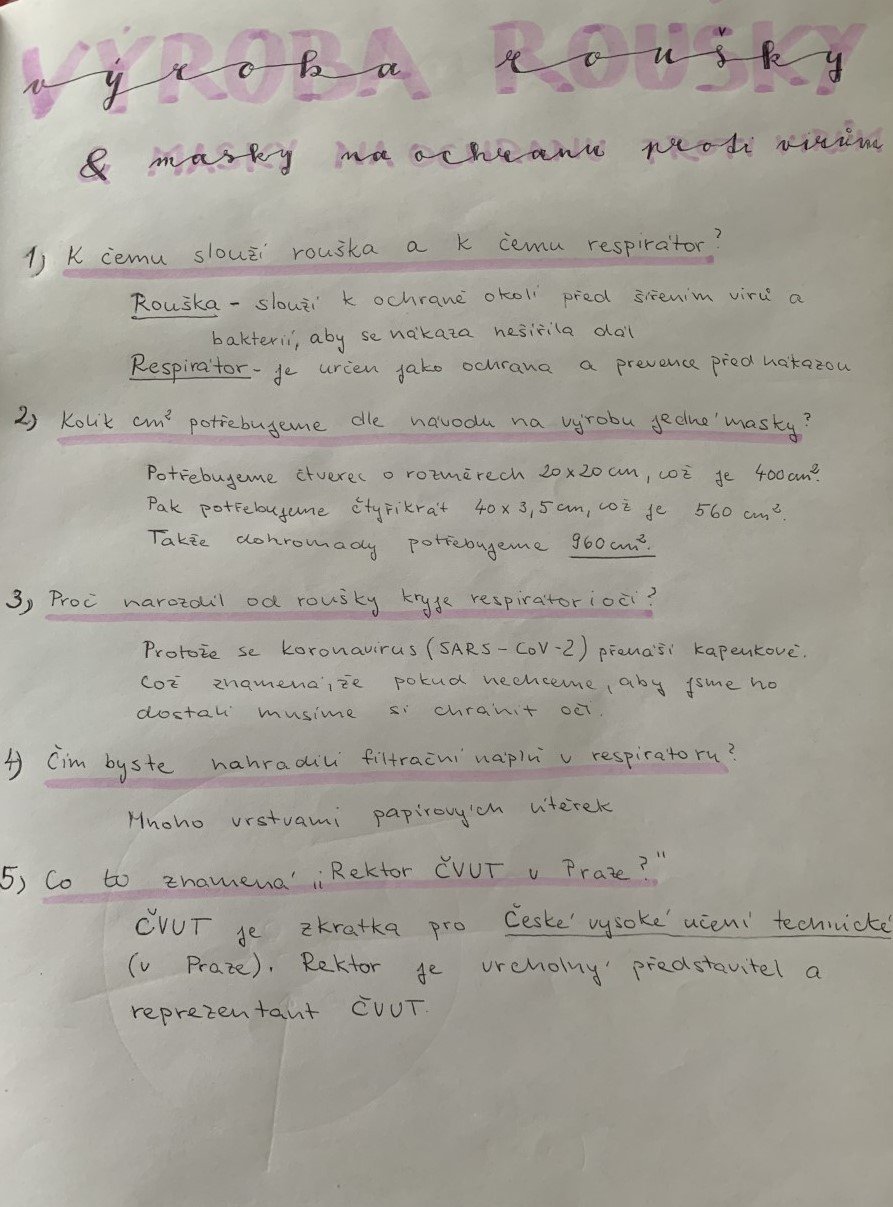 VÝROBA ROUŠKY
výroba roušky
& masky na ochranu proti virům
MASKY NA OCHRANU PROTI VIRŮM
1) K čemu slouží rouška a k čemu respirátor?
Rouška - slouží k ochraně okolí před šířením virů a
bakterií, aby se nákaza nešířila dál
Respirátor - je určen jako ochrana a prevence před nákazou
2) Kolik cm² potřebujeme dle návodu na výrobu jedné masky?
Potřebujeme čtverec o rozměrech 20x20 cm, což je 400cm².
Pak potřebujeme čtyřikrát 40 x 3,5 cm, což je 560 cm².
Takže dohromady potřebujeme 960cm².
3) Proč narozdíl od roušky kryje respirátor i oči?
Protože se koronavirus (SARS-CoV-2) přenáší kapénkově.
Což znamená, že pokud nechceme, aby jsme ho
dostali musíme si chránit oči.
4) Čím byste nahradili filtrační náplň v respirátoru?
Mnoho vrstvami papírových utěrek
5) Co to znamená „Rektor ČVUT v Praze?"
ČVUT je zkratka pro České vysoké učení technické
(v Praze). Rektor je vrcholný představitel a
reprezentant ČVUT.